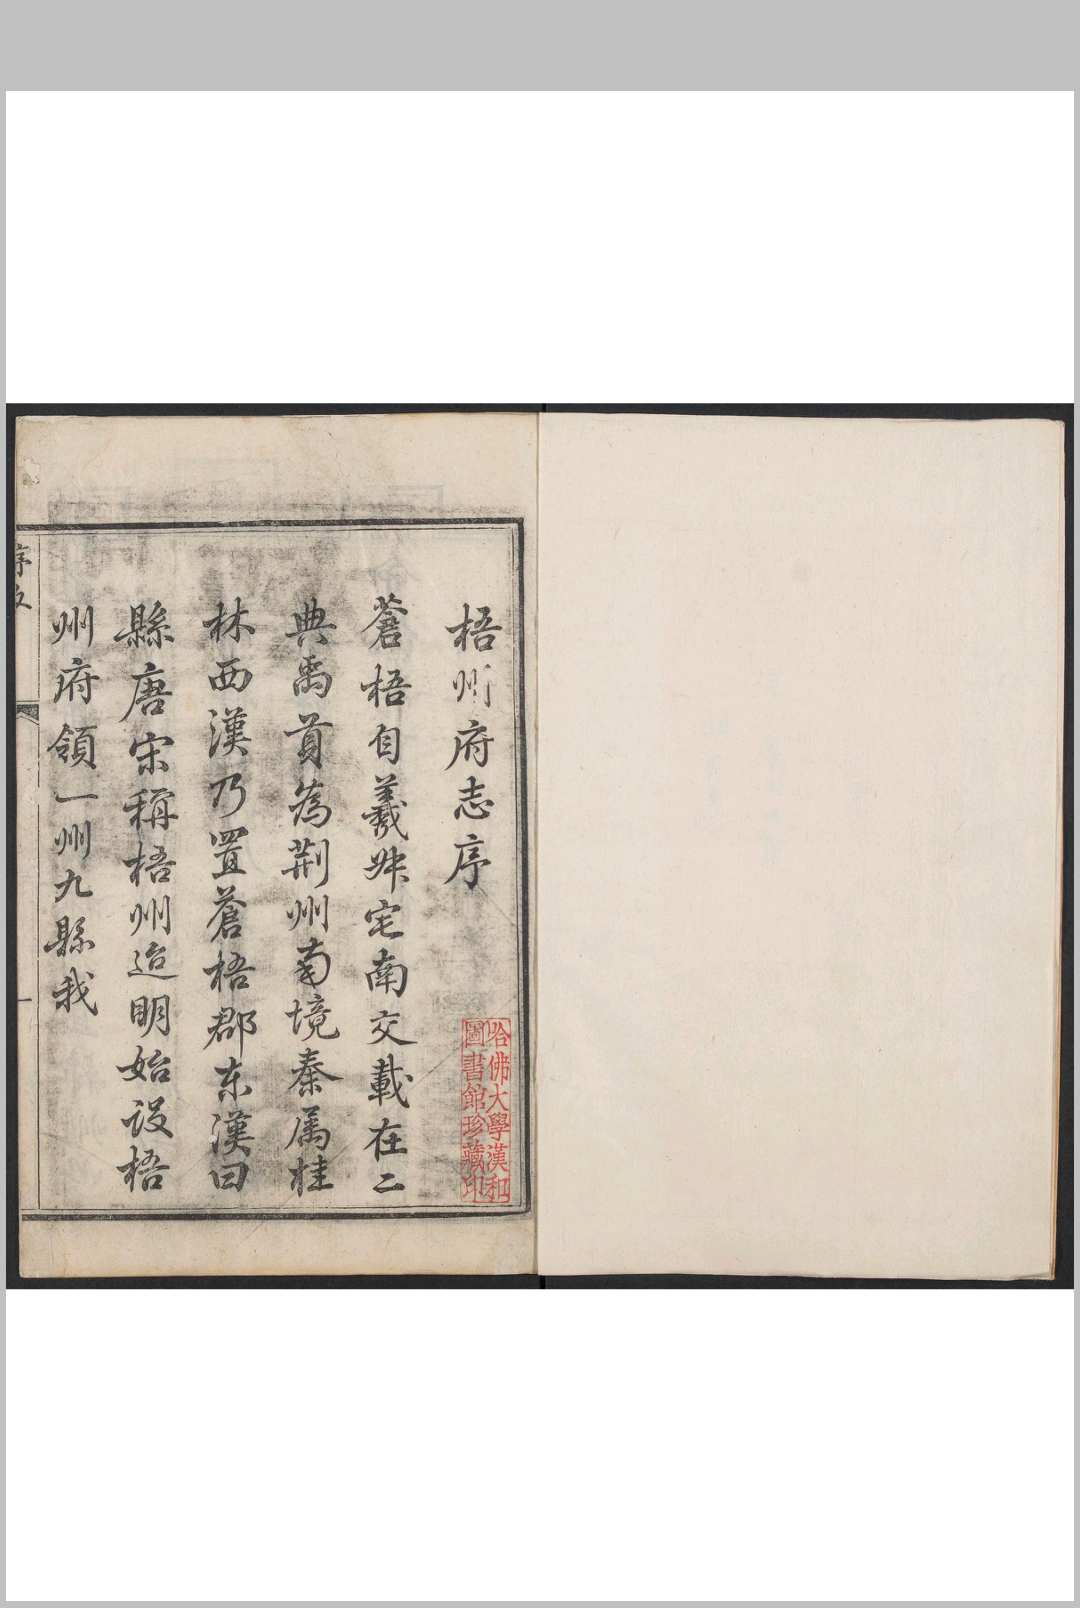 梧州府志序
蒼梧自羲叔宅南交載在二
典禹貢為荆州南境秦属桂
林西漢乃置蒼梧郡东漢曰
縣唐宋稱梧州迨明始設梧
州府領一州九縣我
序
一
哈佛大學漢和
圖書館珍藏印